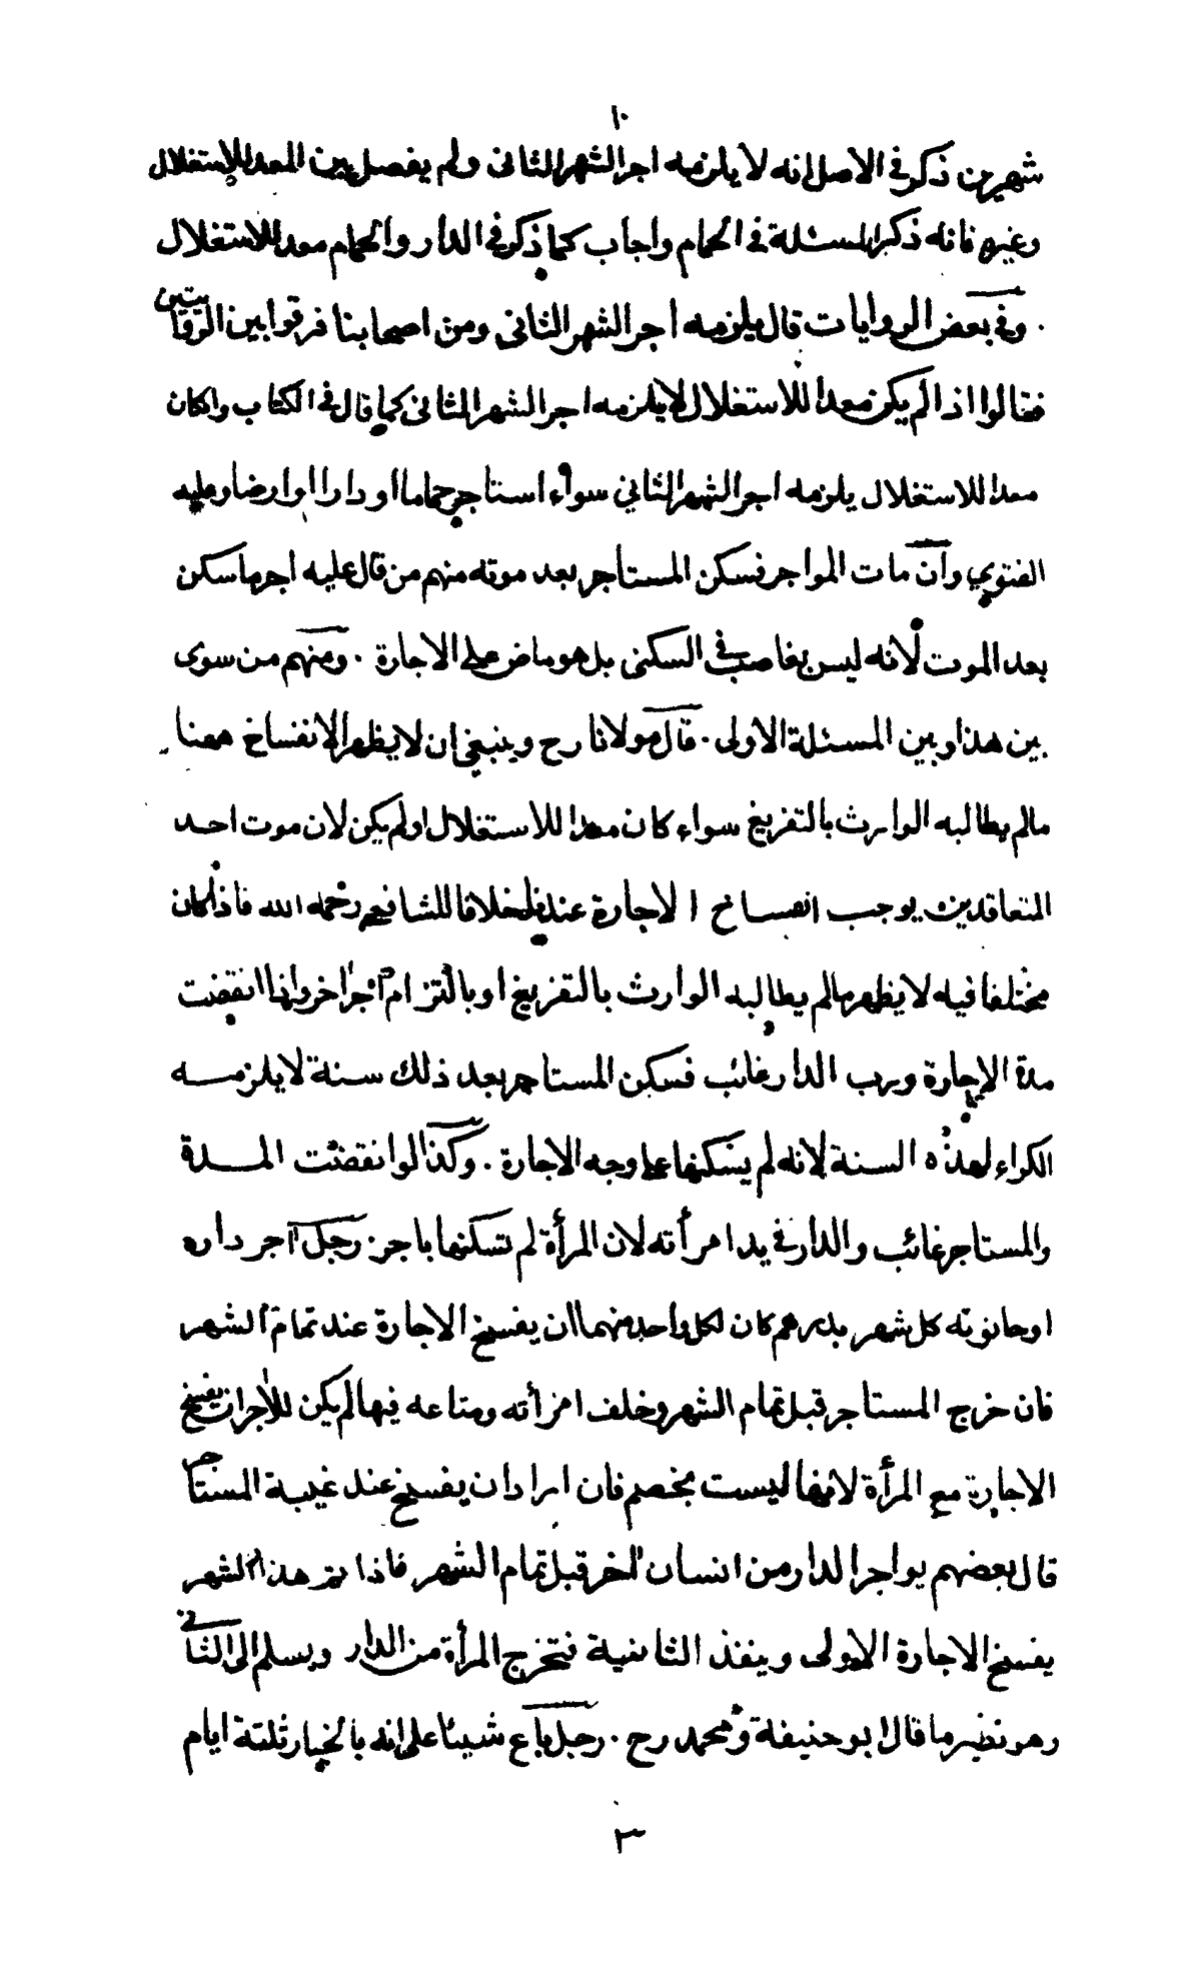 ١٠
شهرين ذكر في الاصل انه لا يلزمه اجر الشهر الثاني ولم يفصل بين المعد للاستغلال
وغيره فانه ذكر المسئلة في الحمام واجاب كما ذكر في الدار والحمام معد للاستغلال
. وفي بعض الروايات قال يلزمه اجر الشهر الثاني ومن اصحابنا فرقوا بين الروايتين
فقالوا اذا لم يكن معدا للاستغلال لا يلزمه اجر الشهر الثاني كما قال في الكتاب وان كان
معدا للاستغلال يلزمه اجر الشهر الثاني سواء استاجر حماما او دارا او ارضا وعليه
الفتوي وان مات المواجر فسكن المستاجر بعد موته منهم من قال عليه اجر ما سكن
بعد الموت لانه ليس بغاصب في السكنى بل هو ماض على الاجارة . ومنهم من سوى
بين هذا وبين المسئلة الاولى . قال مولانا رح وينبغي ان لا يظهر الانفساخ ههنا
مالم يطالبه الوارث بالتفريغ سواء كان معدا للاستغلال او لم يكن لان موت احد
المتعاقدين يوجب انفساخ الاجارة عندنا خلافا للشافعي رحمه الله فاذا كان
مختلفا فيه لا يظهر مالم يطالبه الوارث بالتفريغ او بالتزام اجر اخر واذا انقضت
مدة الاجارة ورب الدار غائب فسكن المستاجر بعد ذلك سنة لا يلزمه
الكراء لهذه السنة لانه لم يسكنها على وجه الاجارة . وكذا لو انقضت المدة
والمستاجر غائب والدار في يد امرأته لان المرأة لم تسكنها باجر . رجل آجر داره
او حانوته كل شهر بدرهم كان لكل واحد منهما ان يفسخ الاجارة عند تمام الشهر
فان خرج المستاجر قبل تمام الشهر وخلف امرأته ومتاعه فيها لم يكن للآجر ان يفسخ
الاجارة مع المرأة لانها ليست بخصم فان اراد ان يفسخ عند غيبة المستاجر
قال بعضهم يواجر الدار من انسان آخر قبل تمام الشهر فاذا تم هذا الشهر
يفسخ الاجارة الاولى وينفذ الثانية فتخرج المرأة من الدار ويسلم الى الثاني
وهو نظير ما قال ابو حنيفة ومحمد رح . رجل باع شيئا على انه بالخيار ثلثة ايام
٣